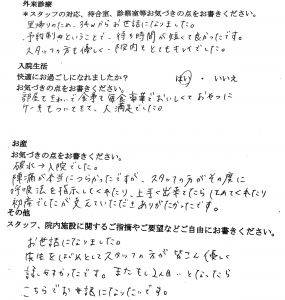 外来診療
*スタッフの対応、待合室、診察室等お気づきの点をお書きください。
里帰りのため、34Wからお世話になりました。
予約制ということで、待ち時間が短くて良かったです。
スタッフの方も優しく、院内もとてもキレイでした。
入院生活
快適にお過ごしになれましたか? はい ・ いいえ
お気づきの点をお書きください。
部屋もきれいで食事も毎食豪華でおいしくておやつに
ケーキもついてきて、大満足でした。
お産
お気づきの点をお書きください。
破水→入院でした。
陣痛が本当につらかったですが、スタッフの方がその度に
呼吸法を指示してくれたり、上手く出来てたらほめてくれたり
初産でしたが支えていただきありがたかったです。
その他
スタッフ、院内施設に関するご指摘やご要望などご自由にお書きください。
お世話になりました。
院長をはじめとしてスタッフの方が皆さん優しく
話しやすかったです。またもし2人目となったら
こちらでお世話になりたいです。